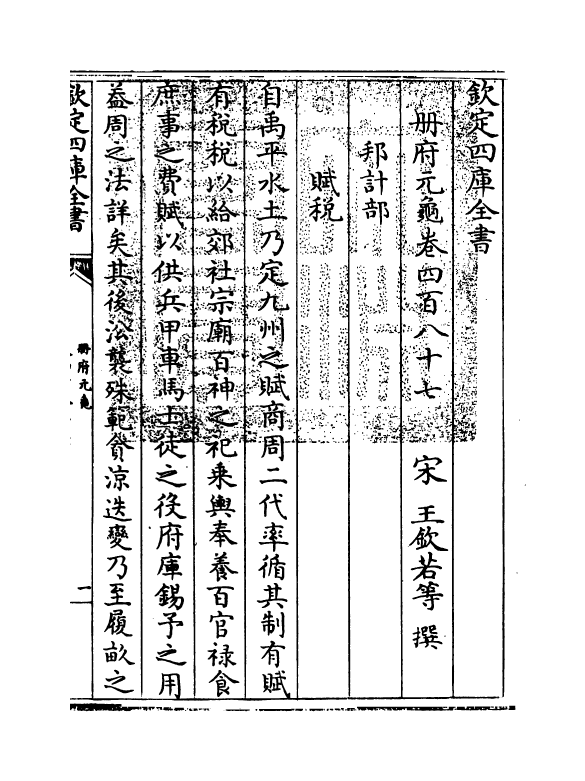 欽定四庫全書
册府元龜卷四百八十七　宋　王欽若等　撰
邦計部
賦税
自禹平水土乃定九州之賦商周二代率循其制有賦
有税税以給郊社宗廟百神之祀乘輿奉養百官禄食
庶事之費賦以供兵甲車馬士徒之役府庫錫予之用
葢周之法詳矣其後沿襲殊範貧涼迭變乃至履畝之
欽定四庫全書
册府元龜
一